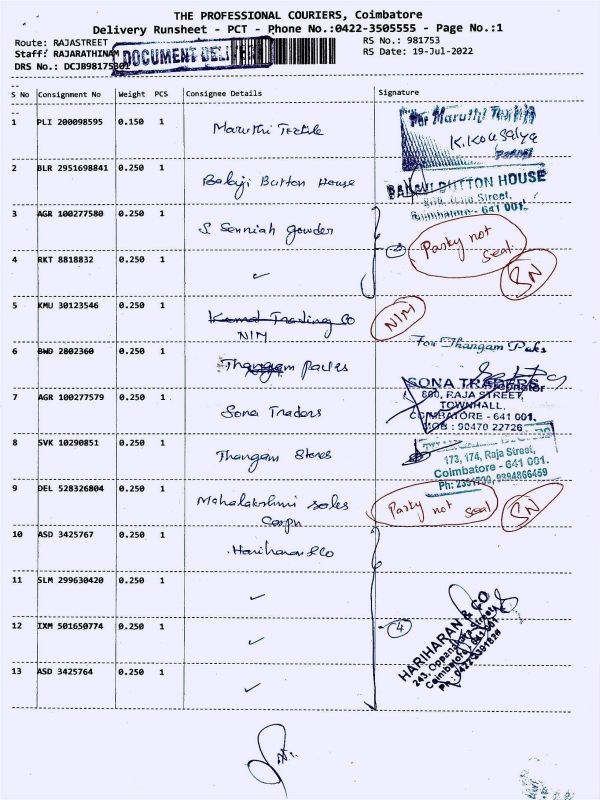 THE PROFESSIONAL COURIERS, Coimbatore
Delivery Runsheet - PCT - Phone No.:0422-3505555 - Page No.:1
Route: RAJASTREET RS No.: 981753
Staff: RAJARATHINAM RS Date: 19-Jul-2022
DRS No.: DCJB98175301
DOCUMENT DELIVERY
S No Consignment No Weight PCS Consignee Details Signature
1 PLI 200098595 0.150 1 Maruthi Textile
For Maruthi Textile
K. Kousalya
2 BLR 2951698841 0.250 1 Balaji Button House
BALAJI BUTTON HOUSE
Street,
Coimbatore - 641 001.
3 AGR 100277580 0.250 1 S. Senniah Gowder
2 Party not seal. SN
4 RKT 8818832 0.250 1 ✓
5 KMU 30123546 0.250 1 Kamal Trading Co
NIM NIM
6 BWD 2802360 0.250 1 Thangam Paks
For Thangam Paks
Proprietor
7 AGR 100277579 0.250 1 Sona Traders
SONA TRADERS
600, RAJA STREET,
TOWNHALL,
COIMBATORE - 641 001.
MOB : 90470 22726
8 SVK 10290851 0.250 1 Thangam Stores
173, 174, Raja Street,
Coimbatore - 641 001.
9894866459
9 DEL 528326804 0.250 1 Mahalakshmi sales
Corpn
Party not seal SN
10 ASD 3425767 0.250 1 Hariharan & Co
11 SLM 299630420 0.250 1 ✓
12 IXM 501650774 0.250 1 ✓
4
HARIHARAN & CO
243, Oppanakara Street,
Coimbatore - 641 001
13 ASD 3425764 0.250 1 ✓